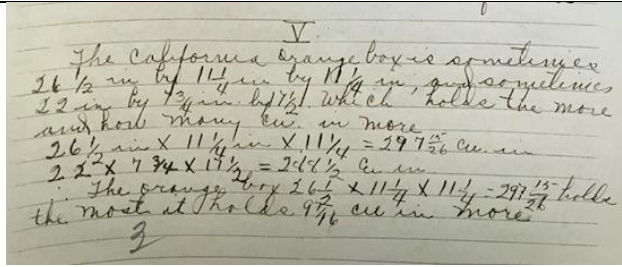 V
The California orange box is sometimes
26 1/2 in by 11 1/4 in by 11 1/4 in, and sometimes
22 in by 7 3/4 in. by 17 1/2. Which holds the more
and how many cu. in more
26 1/2 in X 11 1/4 in X 11 1/4 = 297 15/26 cu. in
22 X 7 3/4 X 17 1/2 = 288 1/2 cu in
The orange box 26 1/2 X 11 1/4 X 11 1/4 = 297 15/26 holds
the most it holds cu in more
3